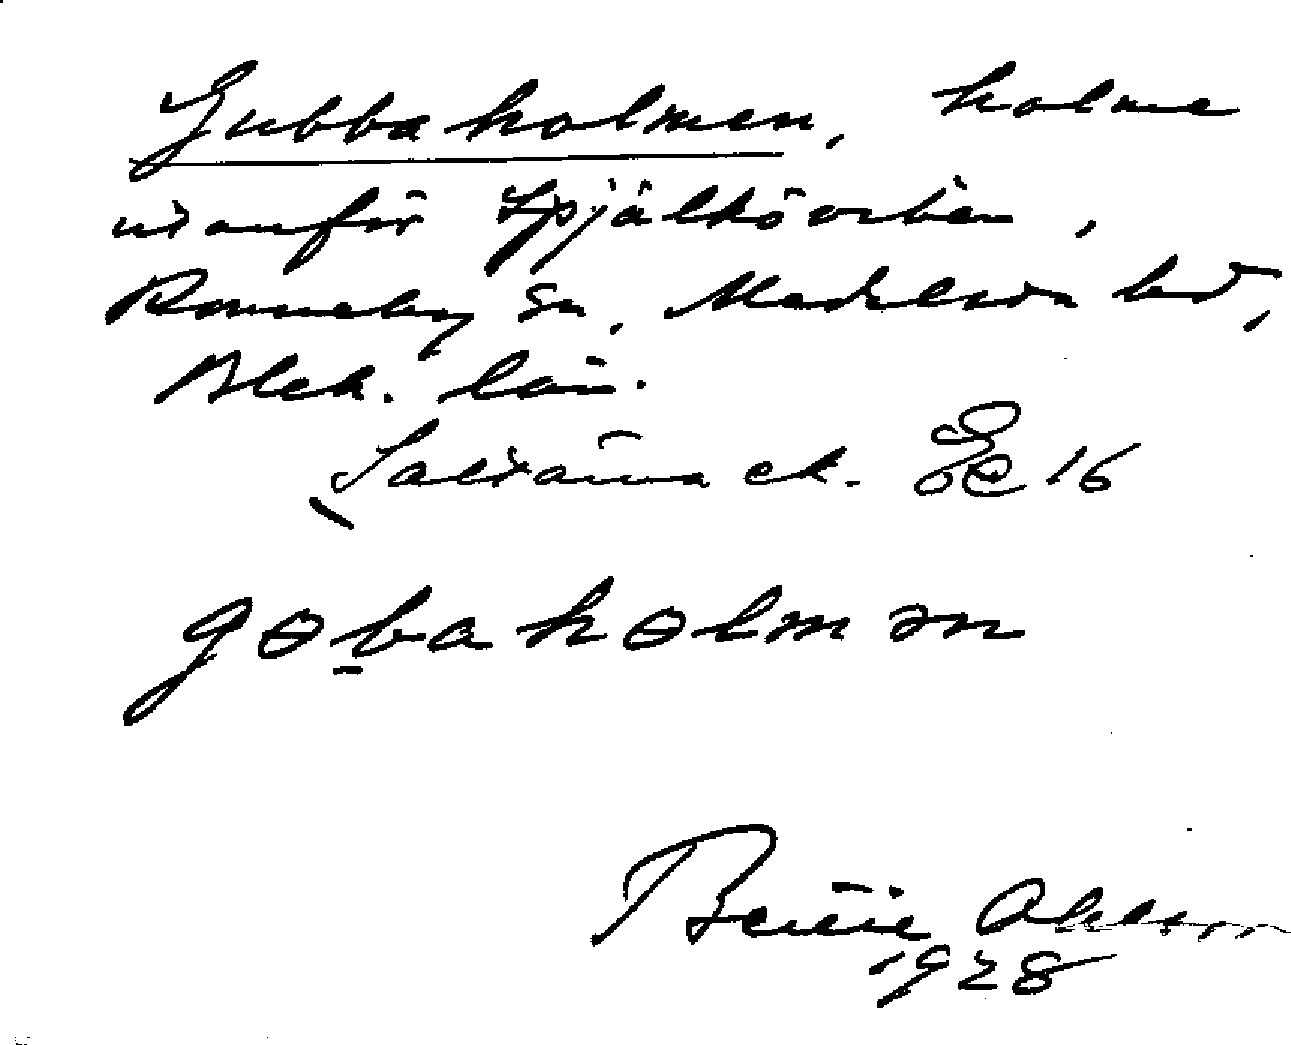 Gubbaholmen, holme
utanför Spjälköviken,
Ronneby sn, Medelsta hd,
Blek. län.
Saltärna ek. 16
gɵbahɵlmən
Ahlsson
1928